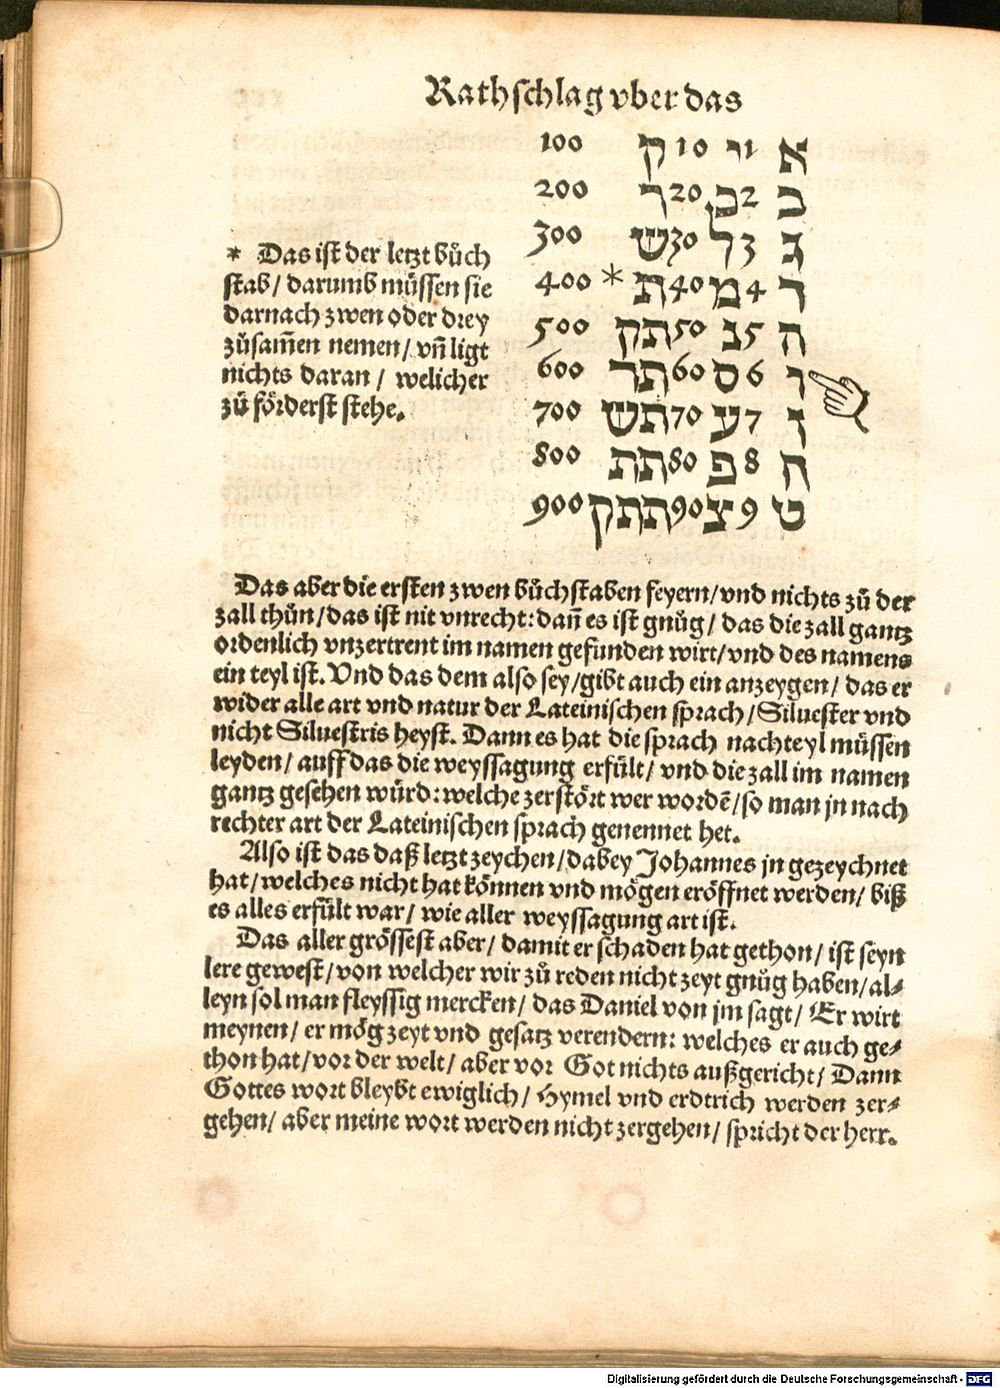 Rathschlag vber das
100 ק 10 י 1 א
200 ר 20 כ 2 ב
300 ש 30 ל 3 ג
400 * ת 40 מ 4 ד
500 תק 50 נ 5 ה
600 תר 60 ס 6 ו
700 תש 70 ע 7 ז
800 תת 80 פ 8 ח
900 תתק 90 צ 9 ט
* Das ist der letzt bůch
stab/ darumb müssen sie
darnach zwen oder drey
zůsam̄en nemen/ vn̄ ligt
nichts daran/ welicher
zů förderst stehe.
Das aber die ersten zwen bůchstaben feyern/vnd nichts zů der
zall thůn/das ist nit vnrecht: dan̄ es ist gnůg/ das die zall gantz
ordenlich vnzertrent im namen gefunden wirt/vnd des namens
ein teyl ist. Vnd das dem also sey/gibt auch ein anzeygen/ das er
wider alle art vnd natur der Lateinischen sprach/Siluester vnd
nicht Siluestris heyst. Dann es hat die sprach nachteyl müssen
leyden/ auff das die weyssagung erfült/ vnd die zall im namen
gantz gesehen würd: welche zerstört wer wordē/so man jn nach
rechter art der Lateinischen sprach genennet het.
Also ist das daß letzt zeychen/dabey Johannes jn gezeychnet
hat/welches nicht hat können vnd mögen eröffnet werden/ biß
es alles erfült war/ wie aller weyssagung art ist.
Das aller grössest aber/ damit er schaden hat gethon/ ist seyn
lere gewest/von welcher wir zů reden nicht zeyt gnůg haben/al⸗
leyn sol man fleyssig mercken/ das Daniel von jm sagt/ Er wirt
meynen/ er mög zeyt vnd gesatz verendern: welches er auch ge⸗
thon hat/vor der welt/ aber vor Got nichts außgericht/ Dann
Gottes wort bleybt ewiglich/ Hymel vnd erdtrich werden zer⸗
gehen/ aber meine wort werden nicht zergehen/ spricht der herr.
Digitalisierung gefördert durch die Deutsche Forschungsgemeinschaft - DFG